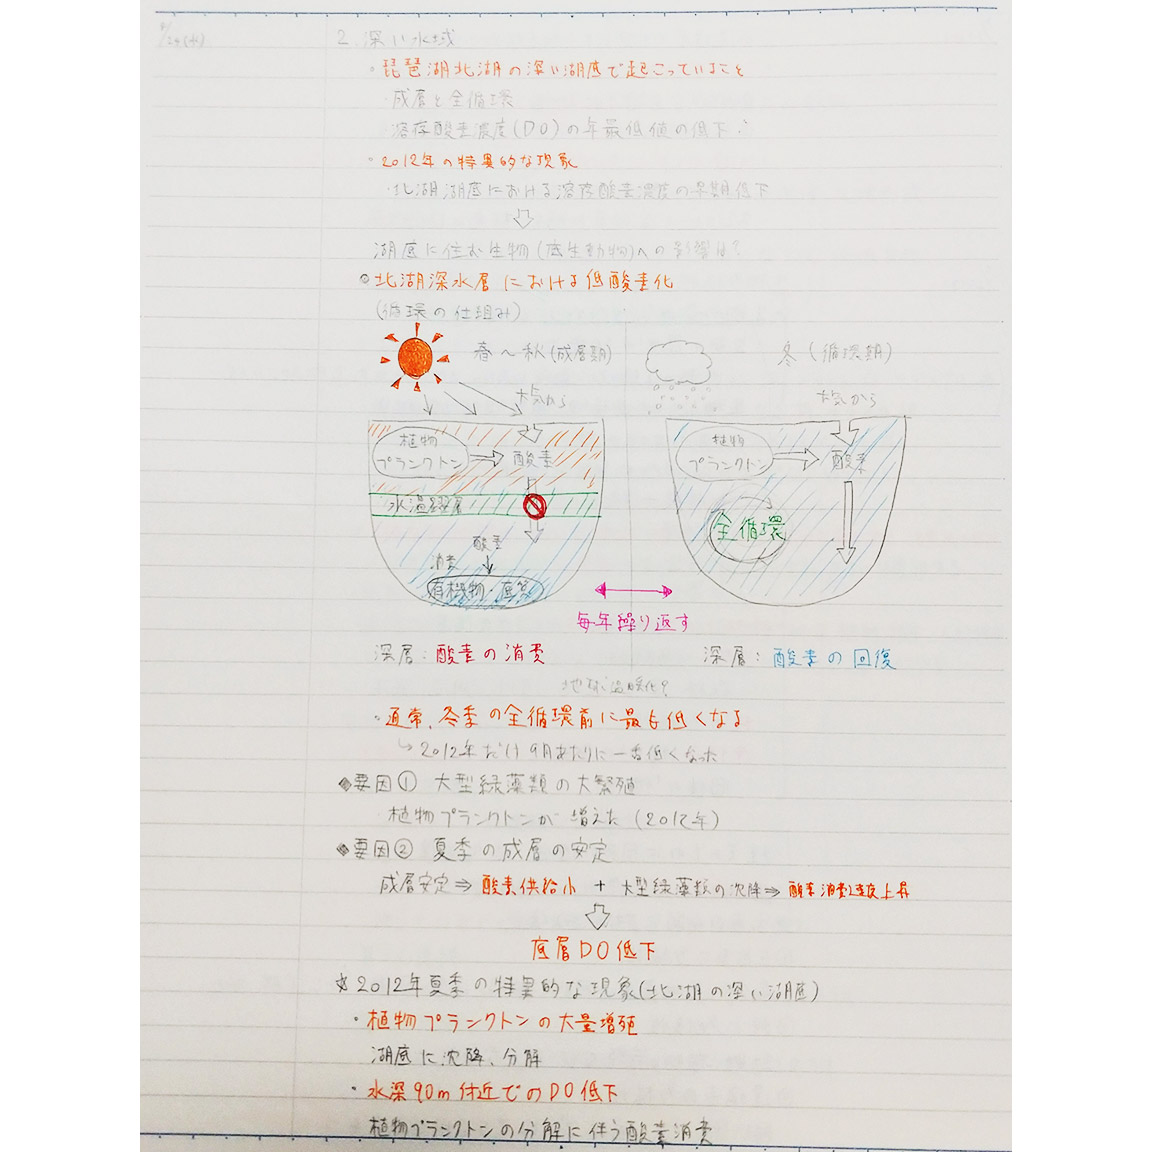 2. 深い水域
・琵琶湖北湖の深い湖底で起こっていること
・成層と全循環
・溶存酸素濃度(DO)の年最低値の低下
・2012年の特異的な現象
・北湖湖底における溶存酸素濃度の早期低下
湖底に住む生物(底生動物)への影響は?
◎北湖深水層における低酸素化
(循環の仕組み)
春〜秋(成層期)
冬(循環期)
大気から
大気から
植物
プランクトン
酸素
水温躍層
酸素
消費
有機物・底質
植物
プランクトン
酸素
全循環
毎年繰り返す
深層:酸素の消費
深層:酸素の回復
地球温暖化?
・通常、冬季の全循環前に最も低くなる
↳2012年だけ9月あたりに一番低くなった
◆要因① 大型緑藻類の大繁殖
・植物プランクトンが増えた(2012年)
◆要因② 夏季の成層の安定
成層安定⇒酸素供給小 + 大型緑藻類の沈降⇒酸素消費速度上昇
底層DO低下
☆2012年夏季の特異的な現象(北湖の深い湖底)
・植物プランクトンの大量増殖
湖底に沈降、分解
・水深90m付近でのDO低下
植物プランクトンの分解に伴う酸素消費